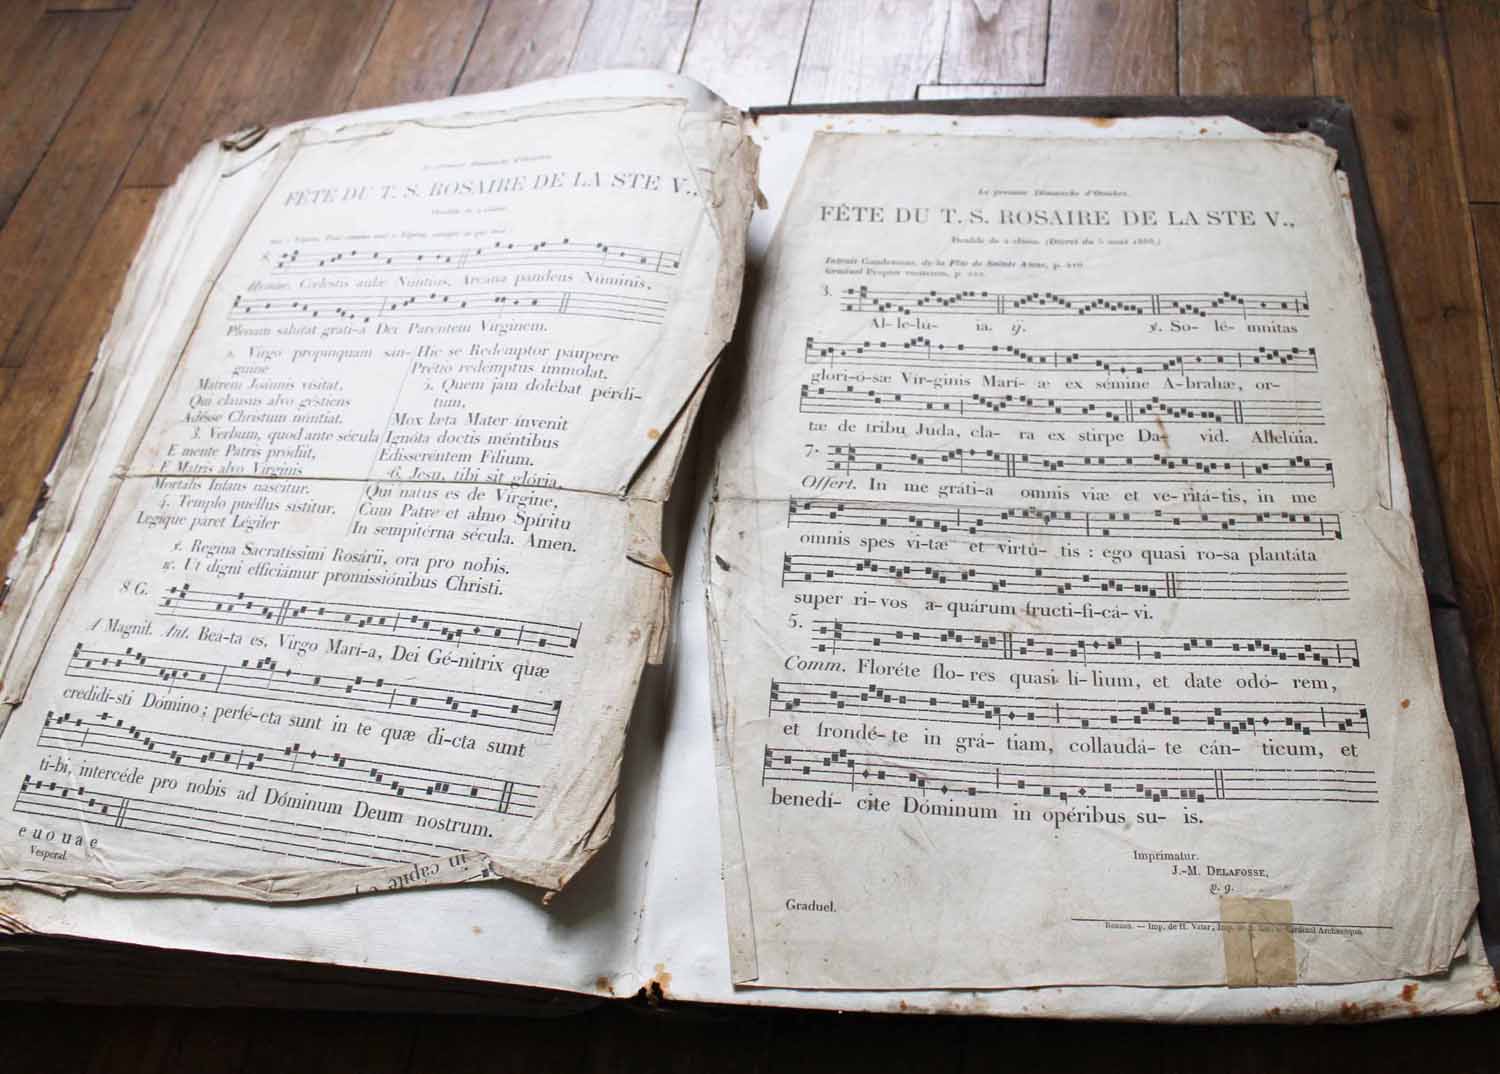 Le premier Dimanche d'Octobre.
FÊTE DU T. S. ROSAIRE DE LA STE V.,
Double de 2 classe.
Hymne. Cœlestis aulæ Nuntius, Arcana pandens Numinis,
Plenam salutat gráti-â Dei Parentem Virginem.
2. Virgo propinquam san-
guine
Matrem Joánnis visitat,
Qui clausus alvo géstiens
Adésse Christum núntiat.
3. Verbum, quod ante sécula
E mente Patris pródiit,
E Matris alvo Virginis
Mortális Infans nascitur.
4. Templo puéllus sístitur,
Legíque paret Légifer
Hic se Redémptor páupere
Prétio redemptus immolat.
5. Quem jam dolébat pérdi-
tum,
Mox læta Mater ínvenit
Ignóta doctis méntibus
Edisseréntem Filium.
6. Jesu, tibi sit glória,
Qui natus es de Virgine,
Cum Patre et almo Spíritu
In sempitérna sécula. Amen.
℣. Regina Sacratíssimi Rosárii, ora pro nobis.
℟. Ut digni efficiámur promissiónibus Christi.
8 G.
A Magnif. Ant. Beá-ta es, Virgo Marí-a, Dei Gé-nitrix quæ
credidí-sti Dómino; perfé-cta sunt in te quæ di-cta sunt
ti-bi, intercéde pro nobis ad Dóminum Deum nostrum.
e u o u a e
Vesperal.
in cápite
Le premier Dimanche d'Octobre.
FÊTE DU T. S. ROSAIRE DE LA STE V.,
Double de 2 classe. (Décret du 5 août 1888.)
Introït Gaudeamus, de la Fête de Sainte Anne, p.
Graduel Propter veritatem, p.
3.
Al-le-lu- ia. ij. ℣. So- lé- mnitas
glori-ó-sæ Vír-ginis Marí- æ ex sémine A-brahæ, or-
tæ de tribu Juda, cla- ra ex stirpe Da- vid. Allelúia.
7.
Offert. In me gráti-a omnis viæ et ve-ritá-tis, in me
omnis spes vi-tæ et virtú- tis : ego quasi ro-sa plantáta
super ri-vos a-quárum fructi-fi-cá-vi.
5.
Comm. Floréte flo-res quasi lí-lium, et date odó- rem,
et frondé-te in grá-tiam, collaudá-te cán- ticum, et
benedí- cite Dóminum in opéribus su- is.
Imprimatur.
J.-M. DELAFOSSE,
v. g.
Graduel.
Rennes. — Imp. de H. Vatar, Imp. Cardinal Archevêque.